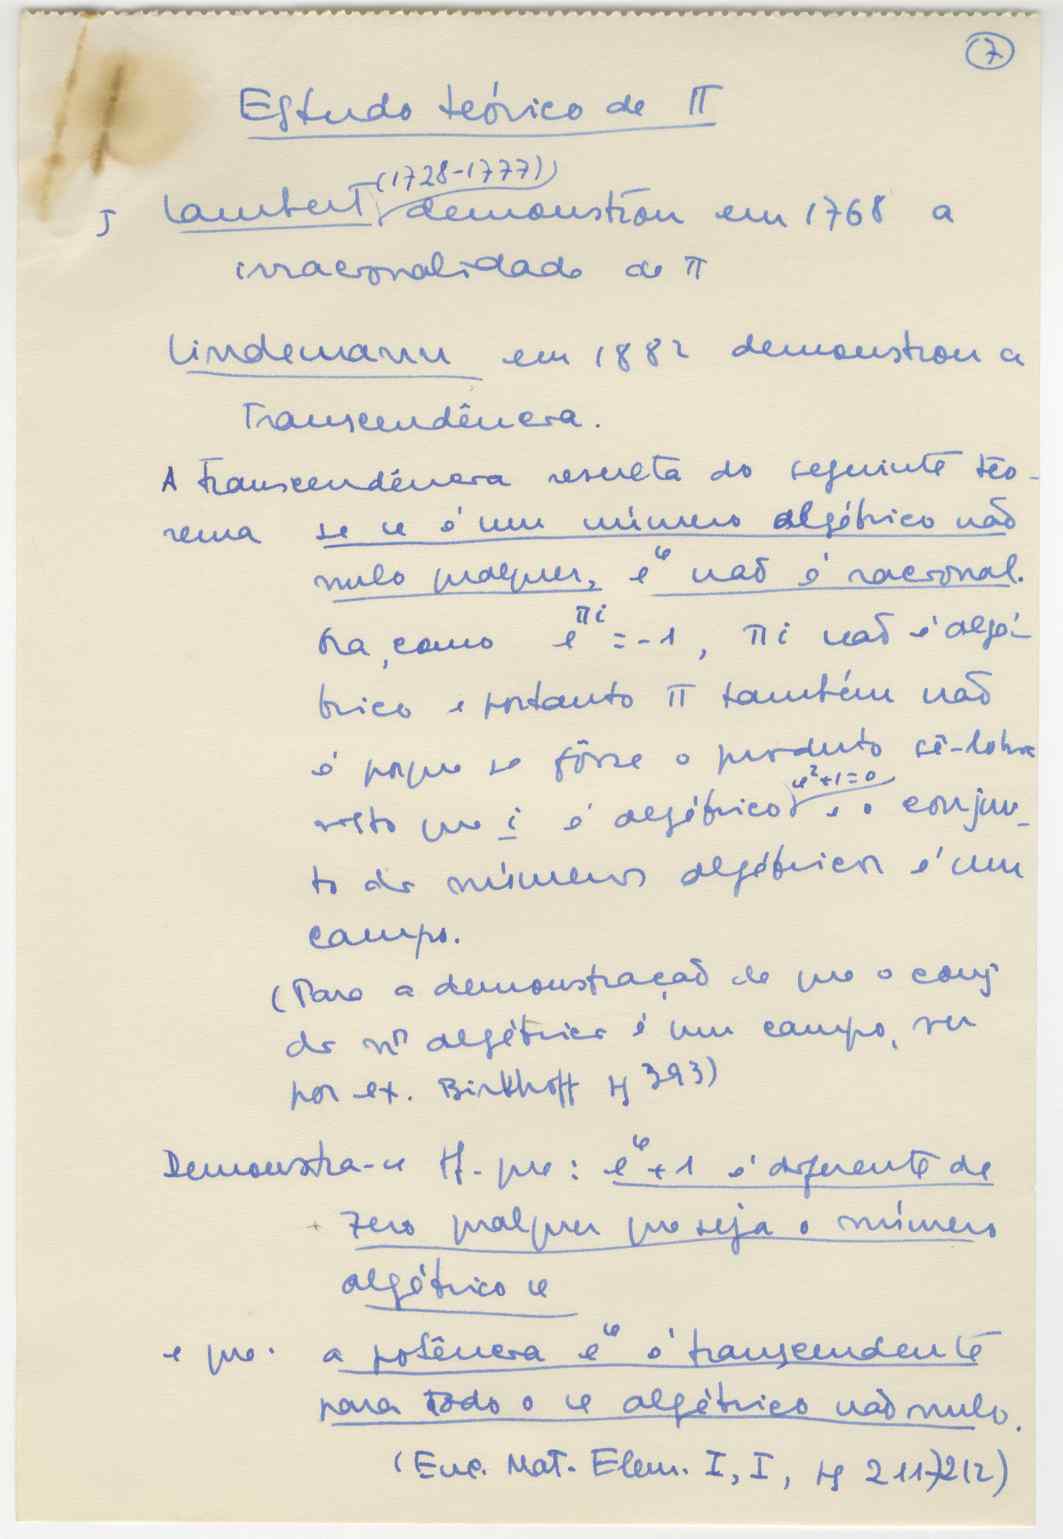 7
Estudo teórico de π
(1728-1777)
Lambert demonstrou em 1768 a
irracionalidade de π
Lindemann em 1882 demonstrou a
Transcendência.
A Transcendência resulta do seguinte teo-
rema se u é um número algébrico não
nulo qualquer, e^u não é racional.
Ora, como e^πi = -1, πi não é algé-
brico e portanto π também não
é porque se fôsse o produto sê-lo-ia
u²+1=0
visto que i é algébrico e o conjun-
to dos números algébricos é um
campo.
(Para a demonstração de que o conj
dos nos algébricos é um campo, ver
por ex. Birkhoff pg 393)
Demonstra-se tb. que: e^u + 1 é diferente de
zero qualquer que seja o número
algébrico u
e que: a potência e^u é transcendente
para todo o u algébrico não nulo.
(Enc. Mat. Elem. I, I, pg 211/212)